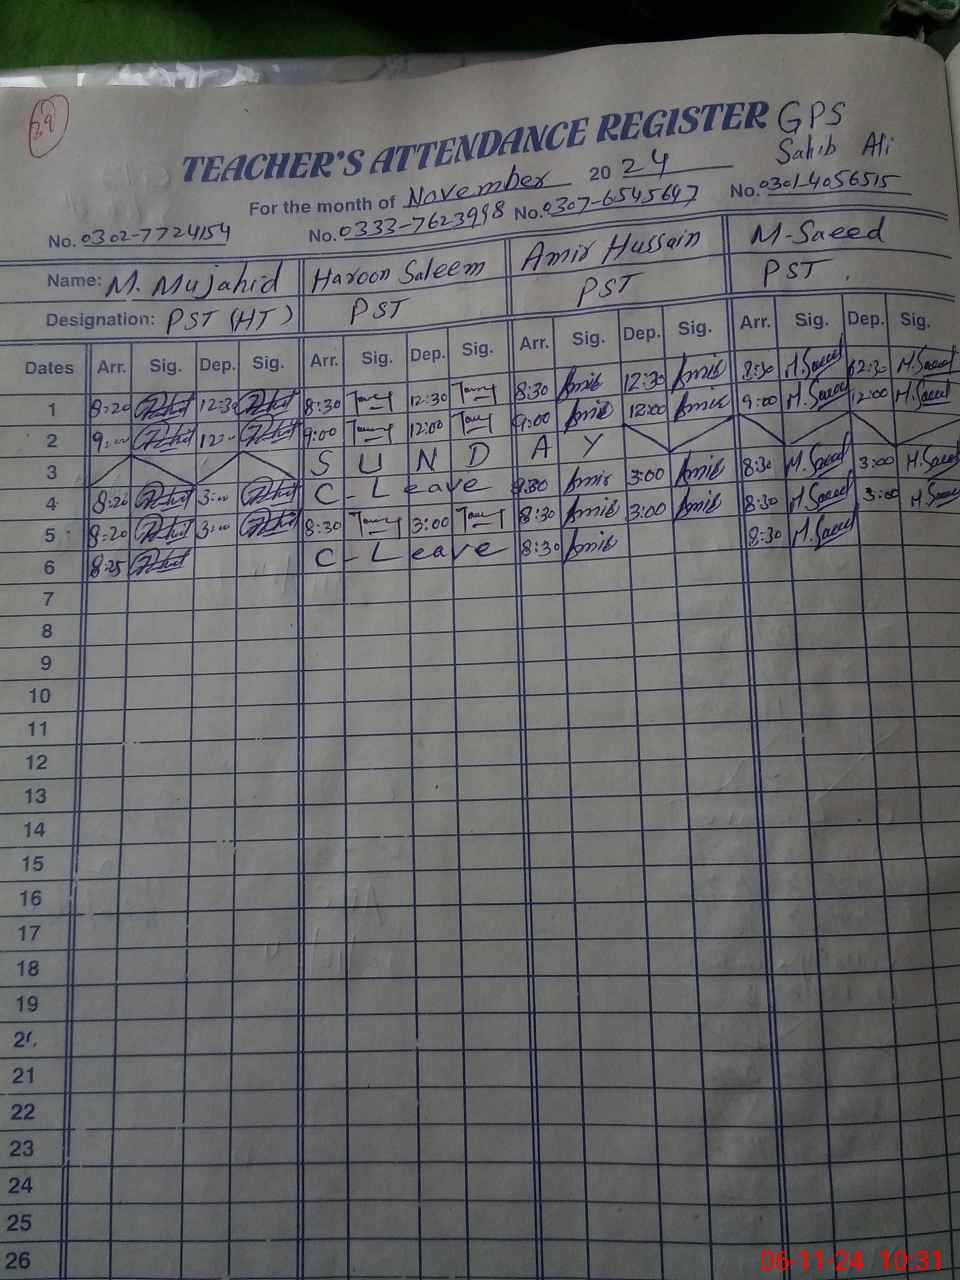 29
TEACHER'S ATTENDANCE REGISTER GPS
Sahib Ali
For the month of November 2024
No. 0302-7724154 No. 0333-7623998 No. 0307-6545697 No. 0301-4056515
Name: M. Mujahid Haroon Saleem Amir Hussain M-Saeed
Designation: PST (HT) PST PST PST.
Dates Arr. Sig. Dep. Sig. Arr. Sig. Dep. Sig. Arr. Sig. Dep. Sig. Arr. Sig. Dep. Sig.
1 8:20 12:30 8:30 12:30 8:30 Amir 12:30 Amir 8:30 M.Saeed 12:30 M.Saeed
2 9:00 12:00 9:00 12:00 9:00 Amir 12:00 Amir 9:00 M.Saeed 12:00 M.Saeed
3 SUNDAY
4 8:20 3:00 C-Leave 8:30 Amir 3:00 Amir 8:30 M.Saeed 3:00 M.Saeed
5 8:20 3:00 8:30 3:00 8:30 Amir 3:00 Amir 8:30 M.Saeed 3:00 M.Saeed
6 8:25 C-Leave 8:30 Amir 8:30 M.Saeed
7
8
9
10
11
12
13
14
15
16
17
18
19
20
21
22
23
24
25
26
06-11-24 10:31